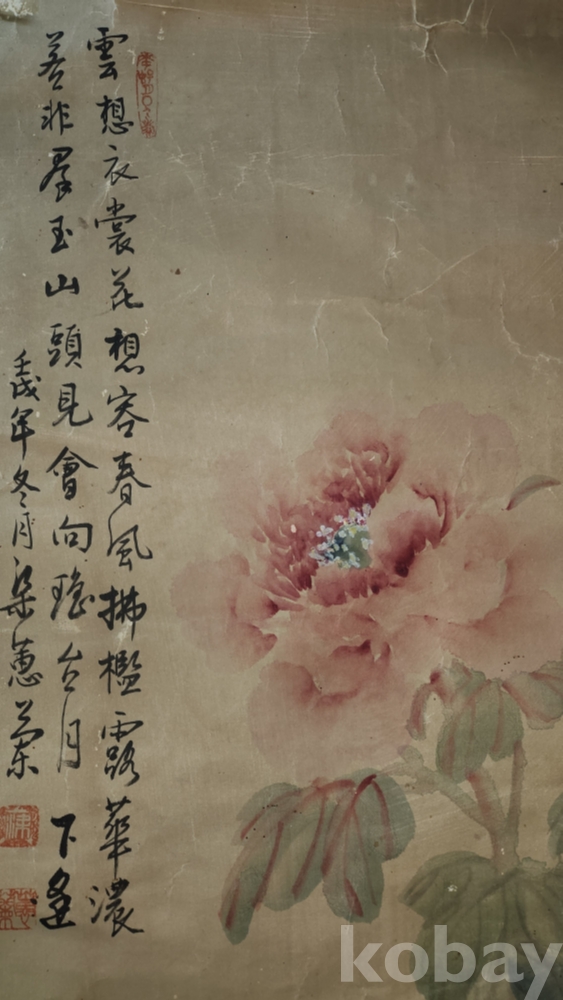 雲想衣裳花想容春風拂檻露華濃
若非羣玉山頭見會向瑤台月下逢
壬戌年冬月梁蕙蘭
kobay